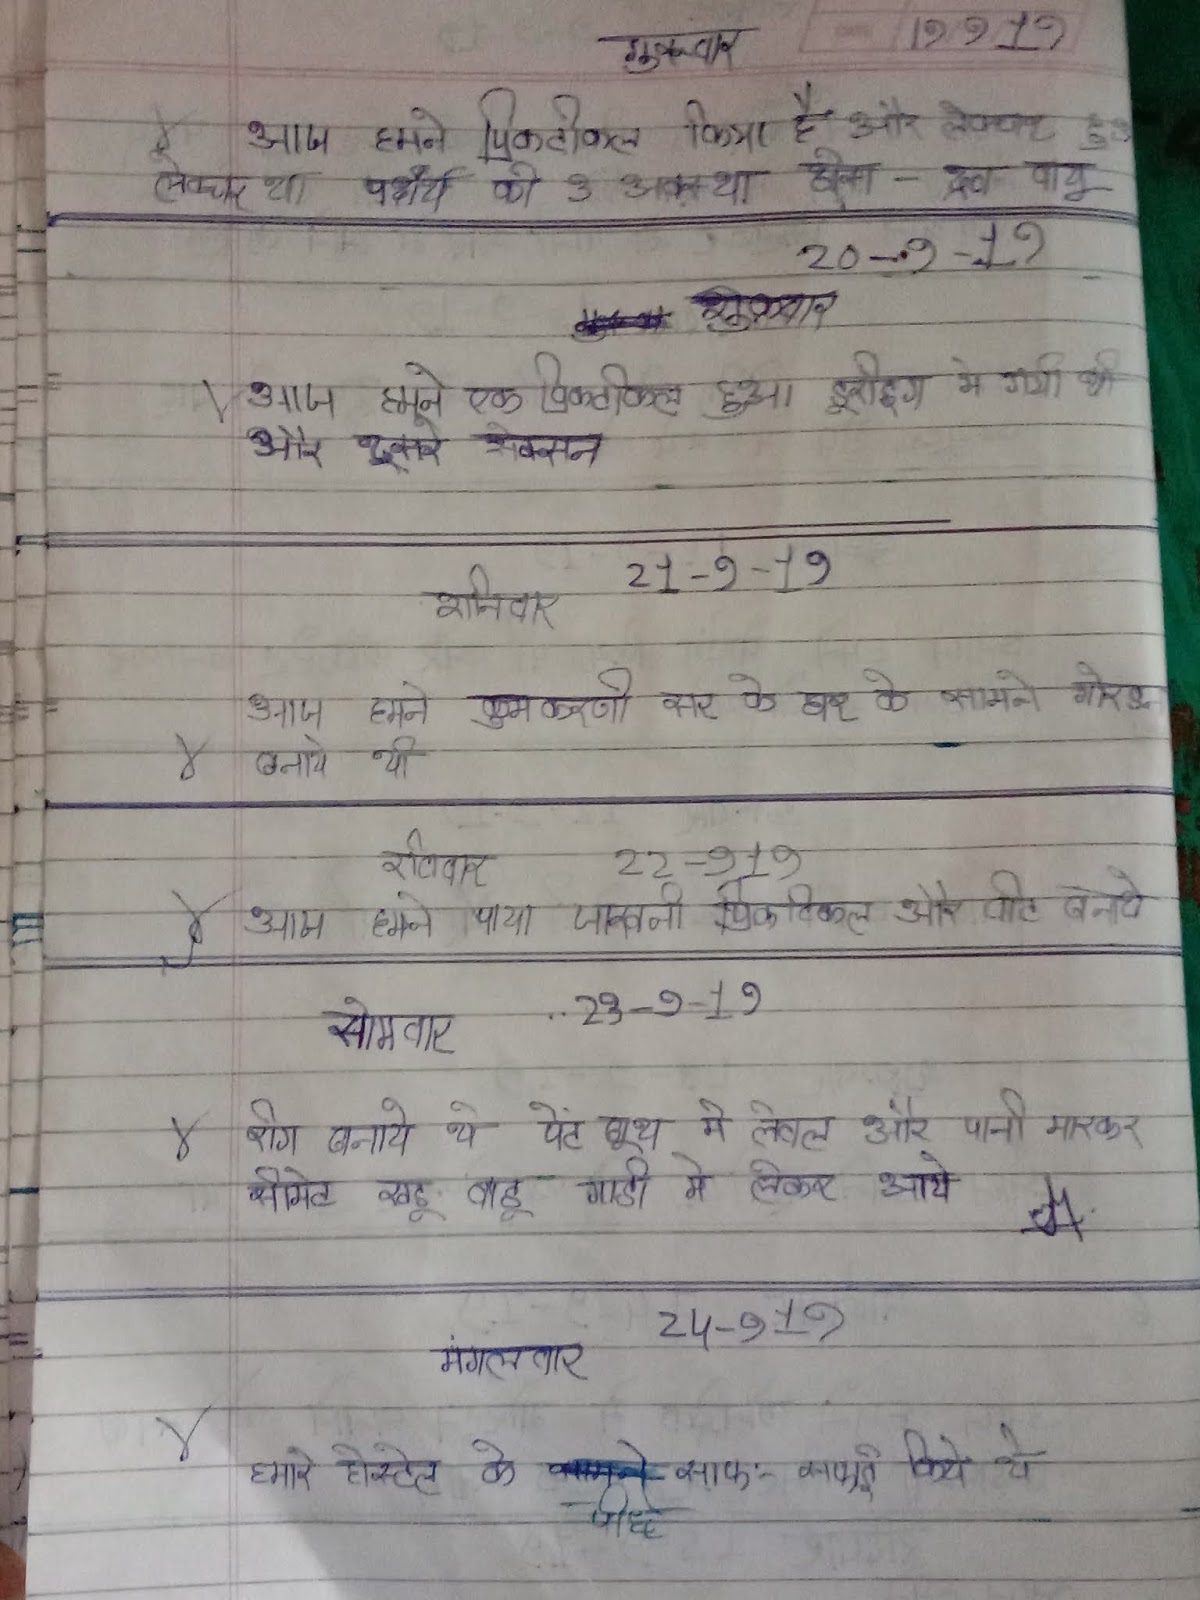 गुरुवार 19 9 19
आज हमने प्रिकटीकल किया है और लेक्चर
लेक्चर था पदार्थ की 3 अवस्था ठोस - द्रव वायु
20-9-19
शुक्रवार
आज हमने एक प्रिकटीकल हुआ ड्रॉइंग मे गयी थी
और दूसरे सेक्सन
21-9-19
शनिवार
आज हमने सर के घर के सामने
बनाये थी
रविवार 22-9 19
आज हमने पाया प्रिकटिकल और बनाये
सोमवार 23-9-19
रींग बनाये थे पेंट बूथ मे लेवल और पानी मारकर
सीमेट खडू वाडू गाडी मे लेकर आये
24-9 19
मंगलवार
हमारे होस्टेल के साफ:- सफाई किये थे
पीछे